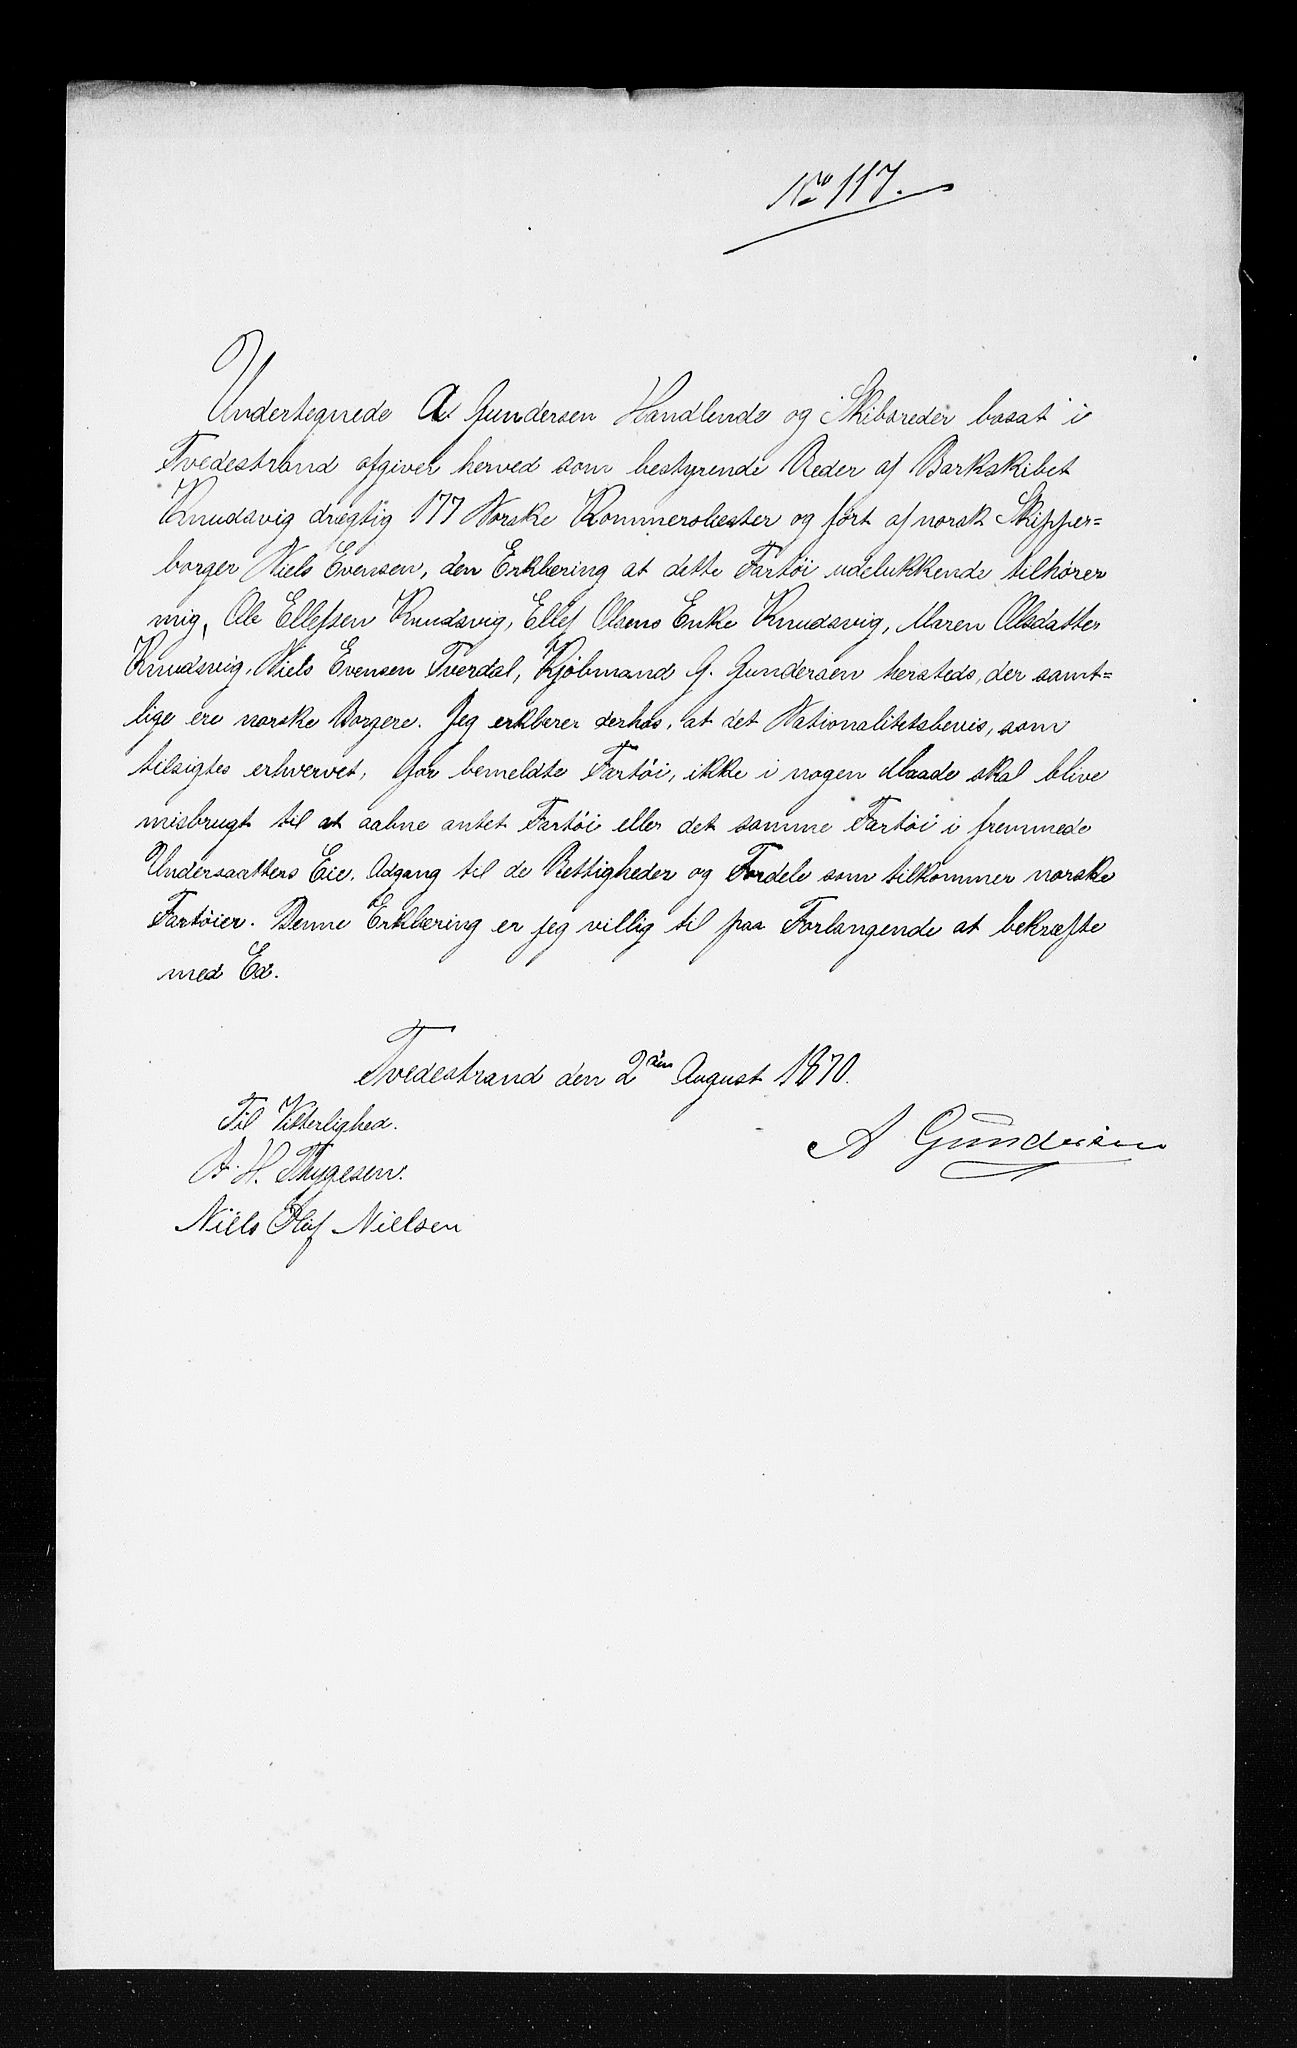 No 117.
Undertegnede A Gundersen Handlende og Skibsreder bosat i
Tvedestrand afgiver herved som bestyrende Reder af Barkskibet
Knudsvig drægtig 177 Norske Kommerslæster og ført af norsk Skipper=
borger Niels Evensen, den Erklæring at dette Fartöi udelukkende tilhører
mig, Ole Ellefsen Knudsvig, Ellef Olsens Enke Knudsvig, Maren Olsdatter
Knudsvig, Niels Evensen Tverdal, Kjöbmand G. Gundersen hersteds, der samt=
lige ere norske Borgere. Jeg erklærer derhos, at det Nationalitetsbevis, som
tilsigtes erhvervet, for bemeldte Fartöi, ikke i nogen Maade skal blive
misbrugt til at aabne antet Fartöi eller det samme Fartöi i fremmede
Undersaatters Eie. Adgang til de Rettigheder og Fordele som tilkommer norske
Fartöier. Denne Erklæring er jeg villig til paa Forlangende at bekræfte
med Ed.
Tvedestrand den 2den August 1870.
Til Vitterlighed.
A. H. Thygesen.
A Gundersen
Niels Olaf Nielsen